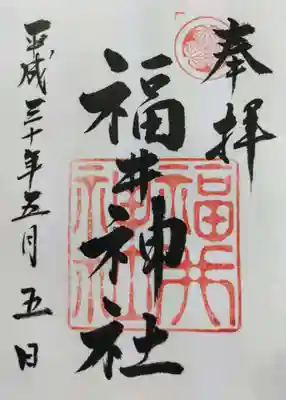 奉拝
福井神社
福井
神社
平成三十年五月五日